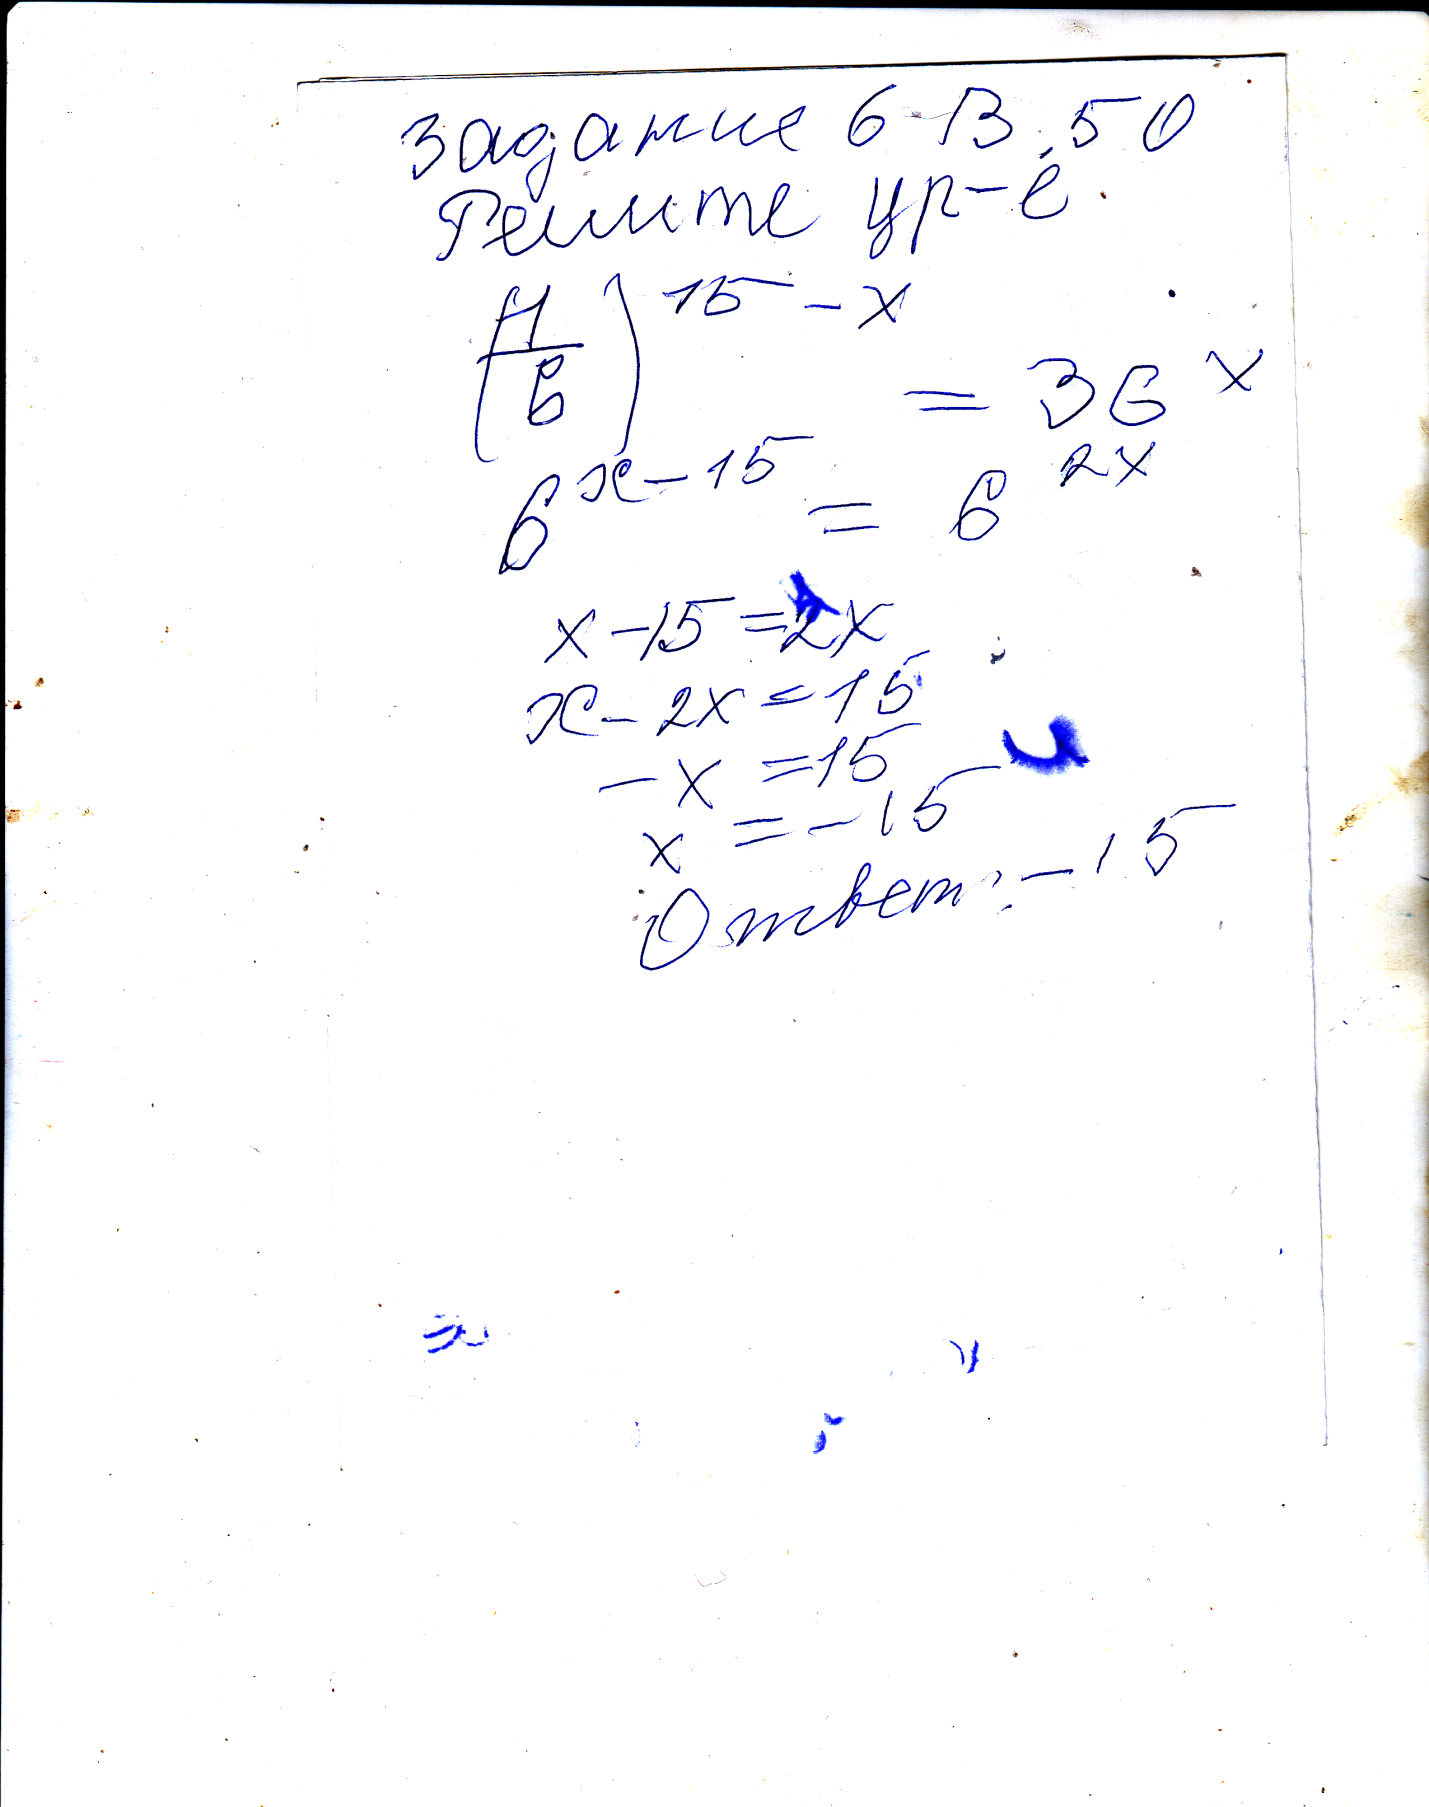 Задание 6 В.50
Решите ур-е
(1/6)^15-x = 36^x
6^x-15 = 6^2x
x-15=2x
x-2x=15
-x=15
x=-15
Ответ:-15